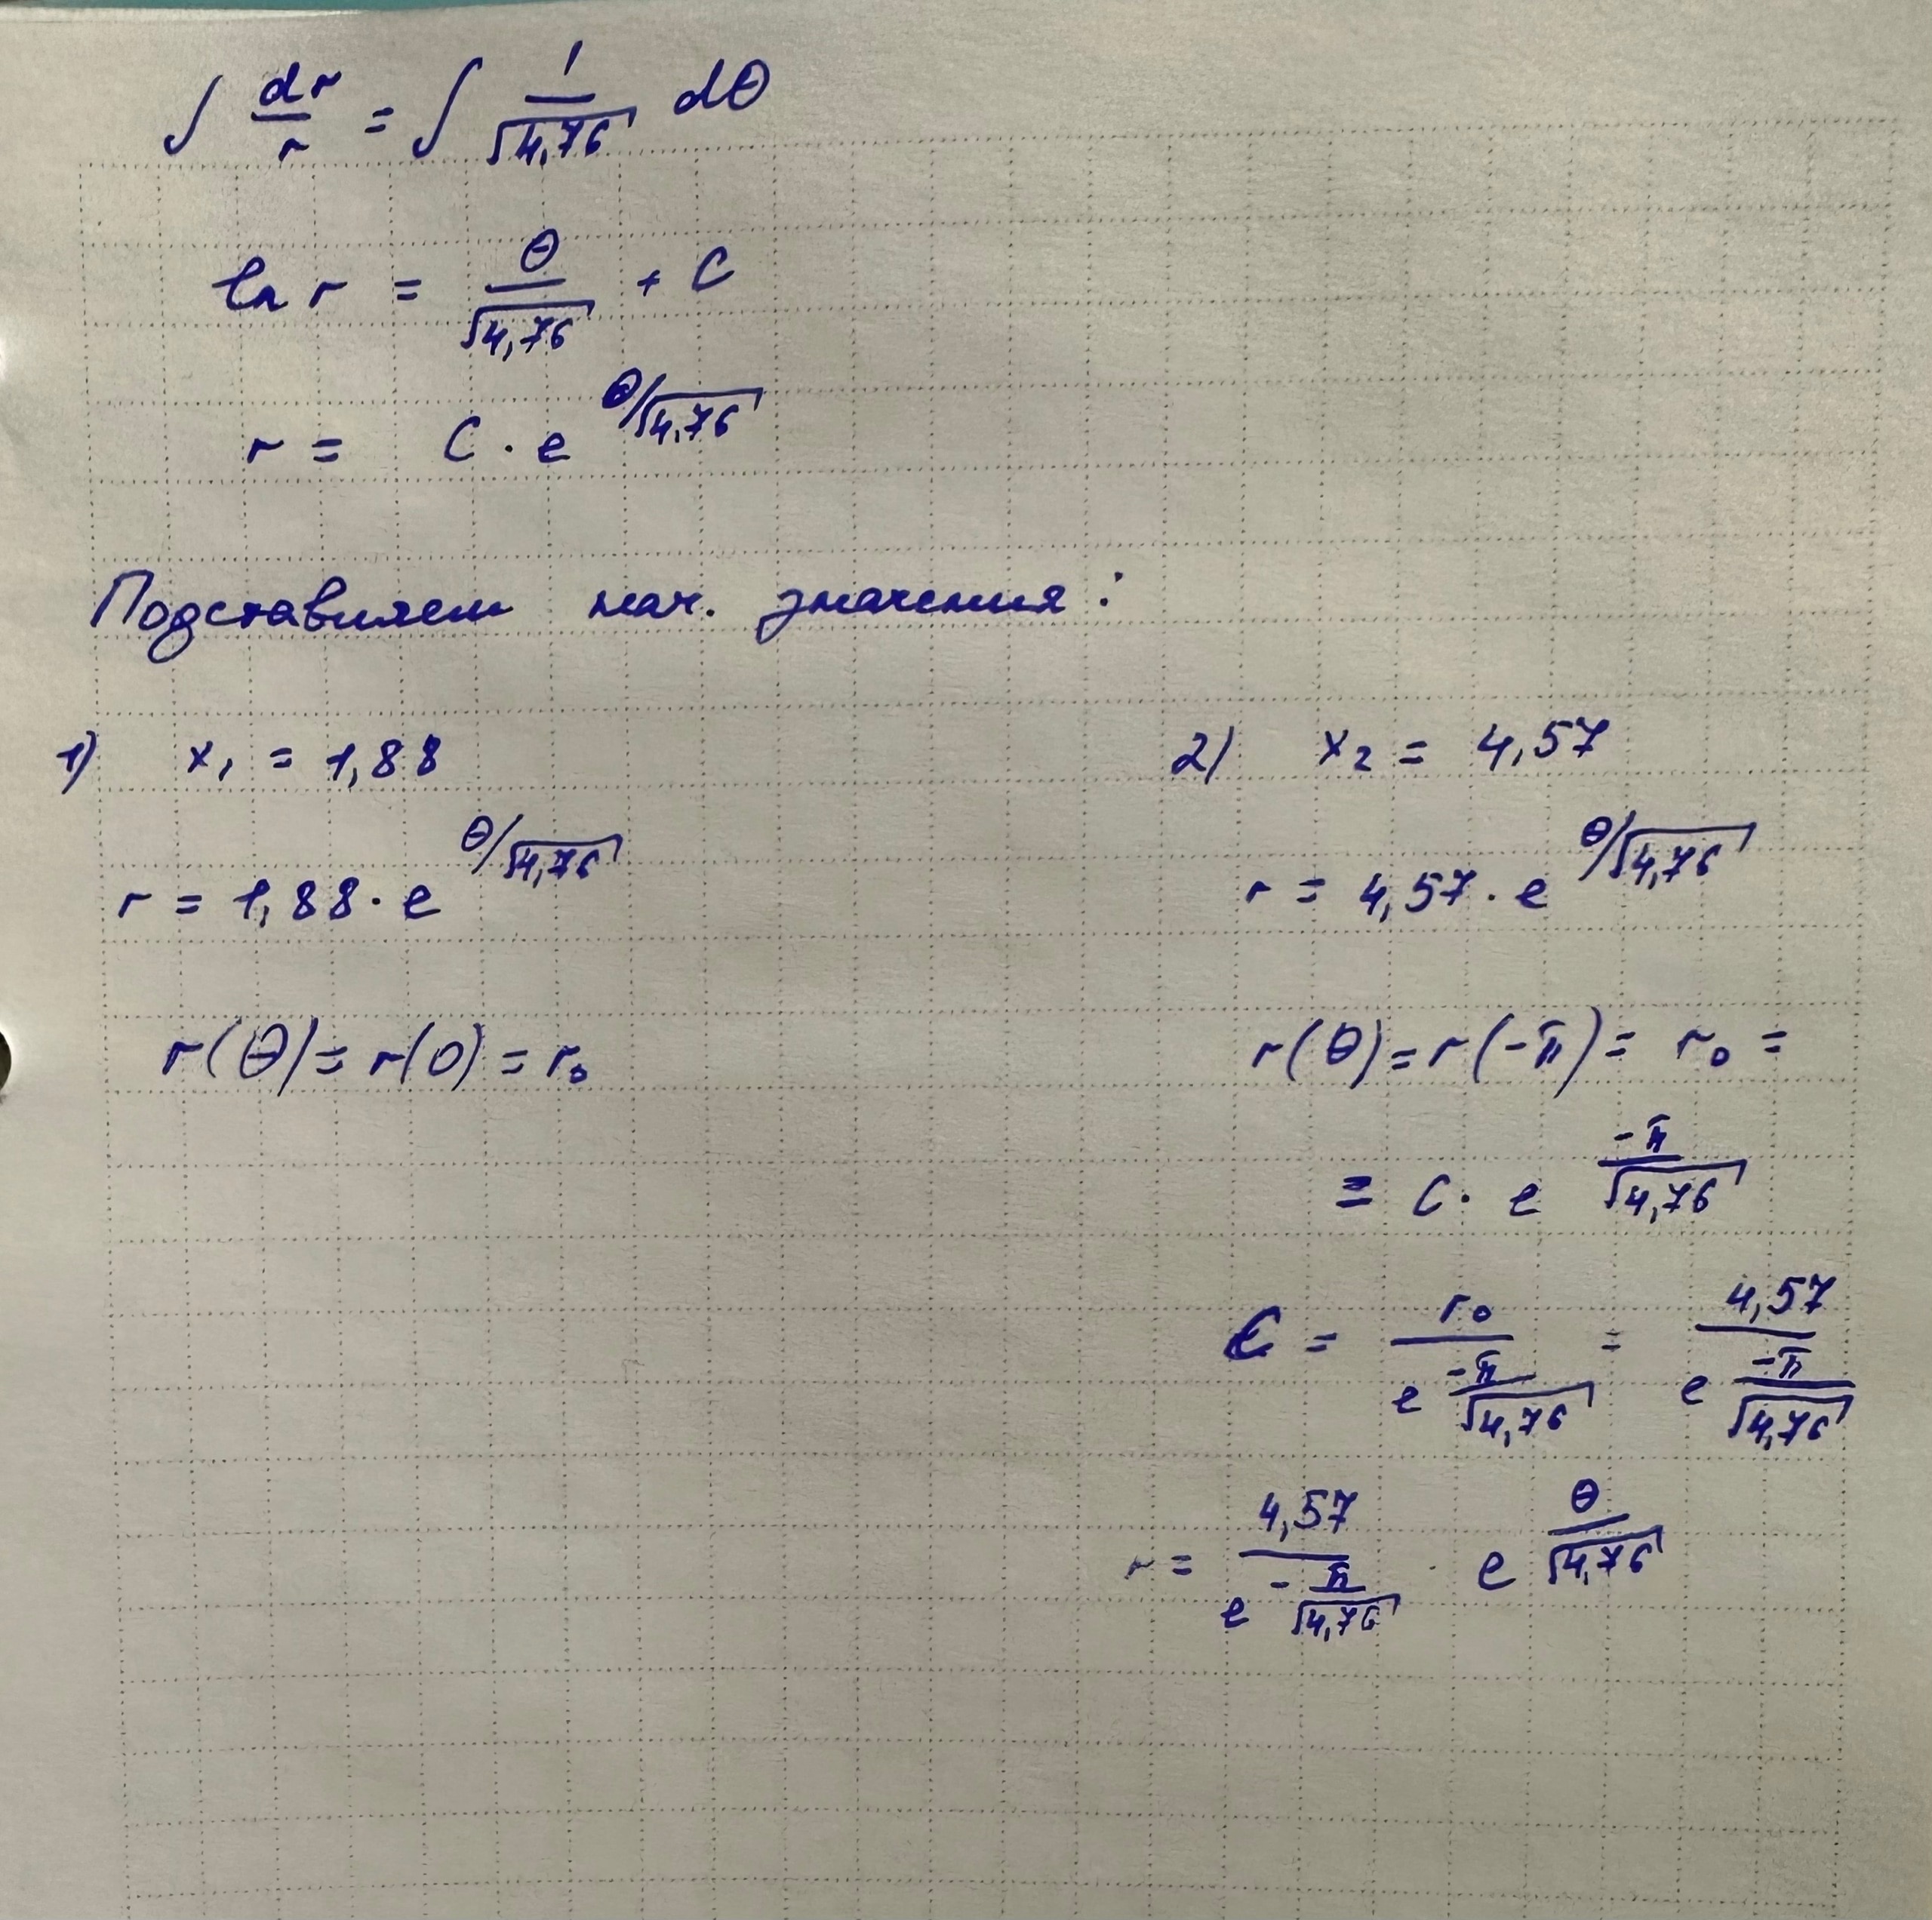 ∫ dr/r = ∫ 1/√4,76 dθ
ln r = θ/√4,76 + C
r = C · e^(θ/√4,76)
Подставляем нач. значения:
1) x₁ = 1,88
r = 1,88 · e^(θ/√4,76)
r(θ) = r(0) = r₀
2) x₂ = 4,57
r = 4,57 · e^(θ/√4,76)
r(θ) = r(-π) = r₀ =
= C · e^(-π/√4,76)
C = r₀/e^(-π/√4,76) = 4,57/e^(-π/√4,76)
r = 4,57/e^(-π/√4,76) · e^(θ/√4,76)